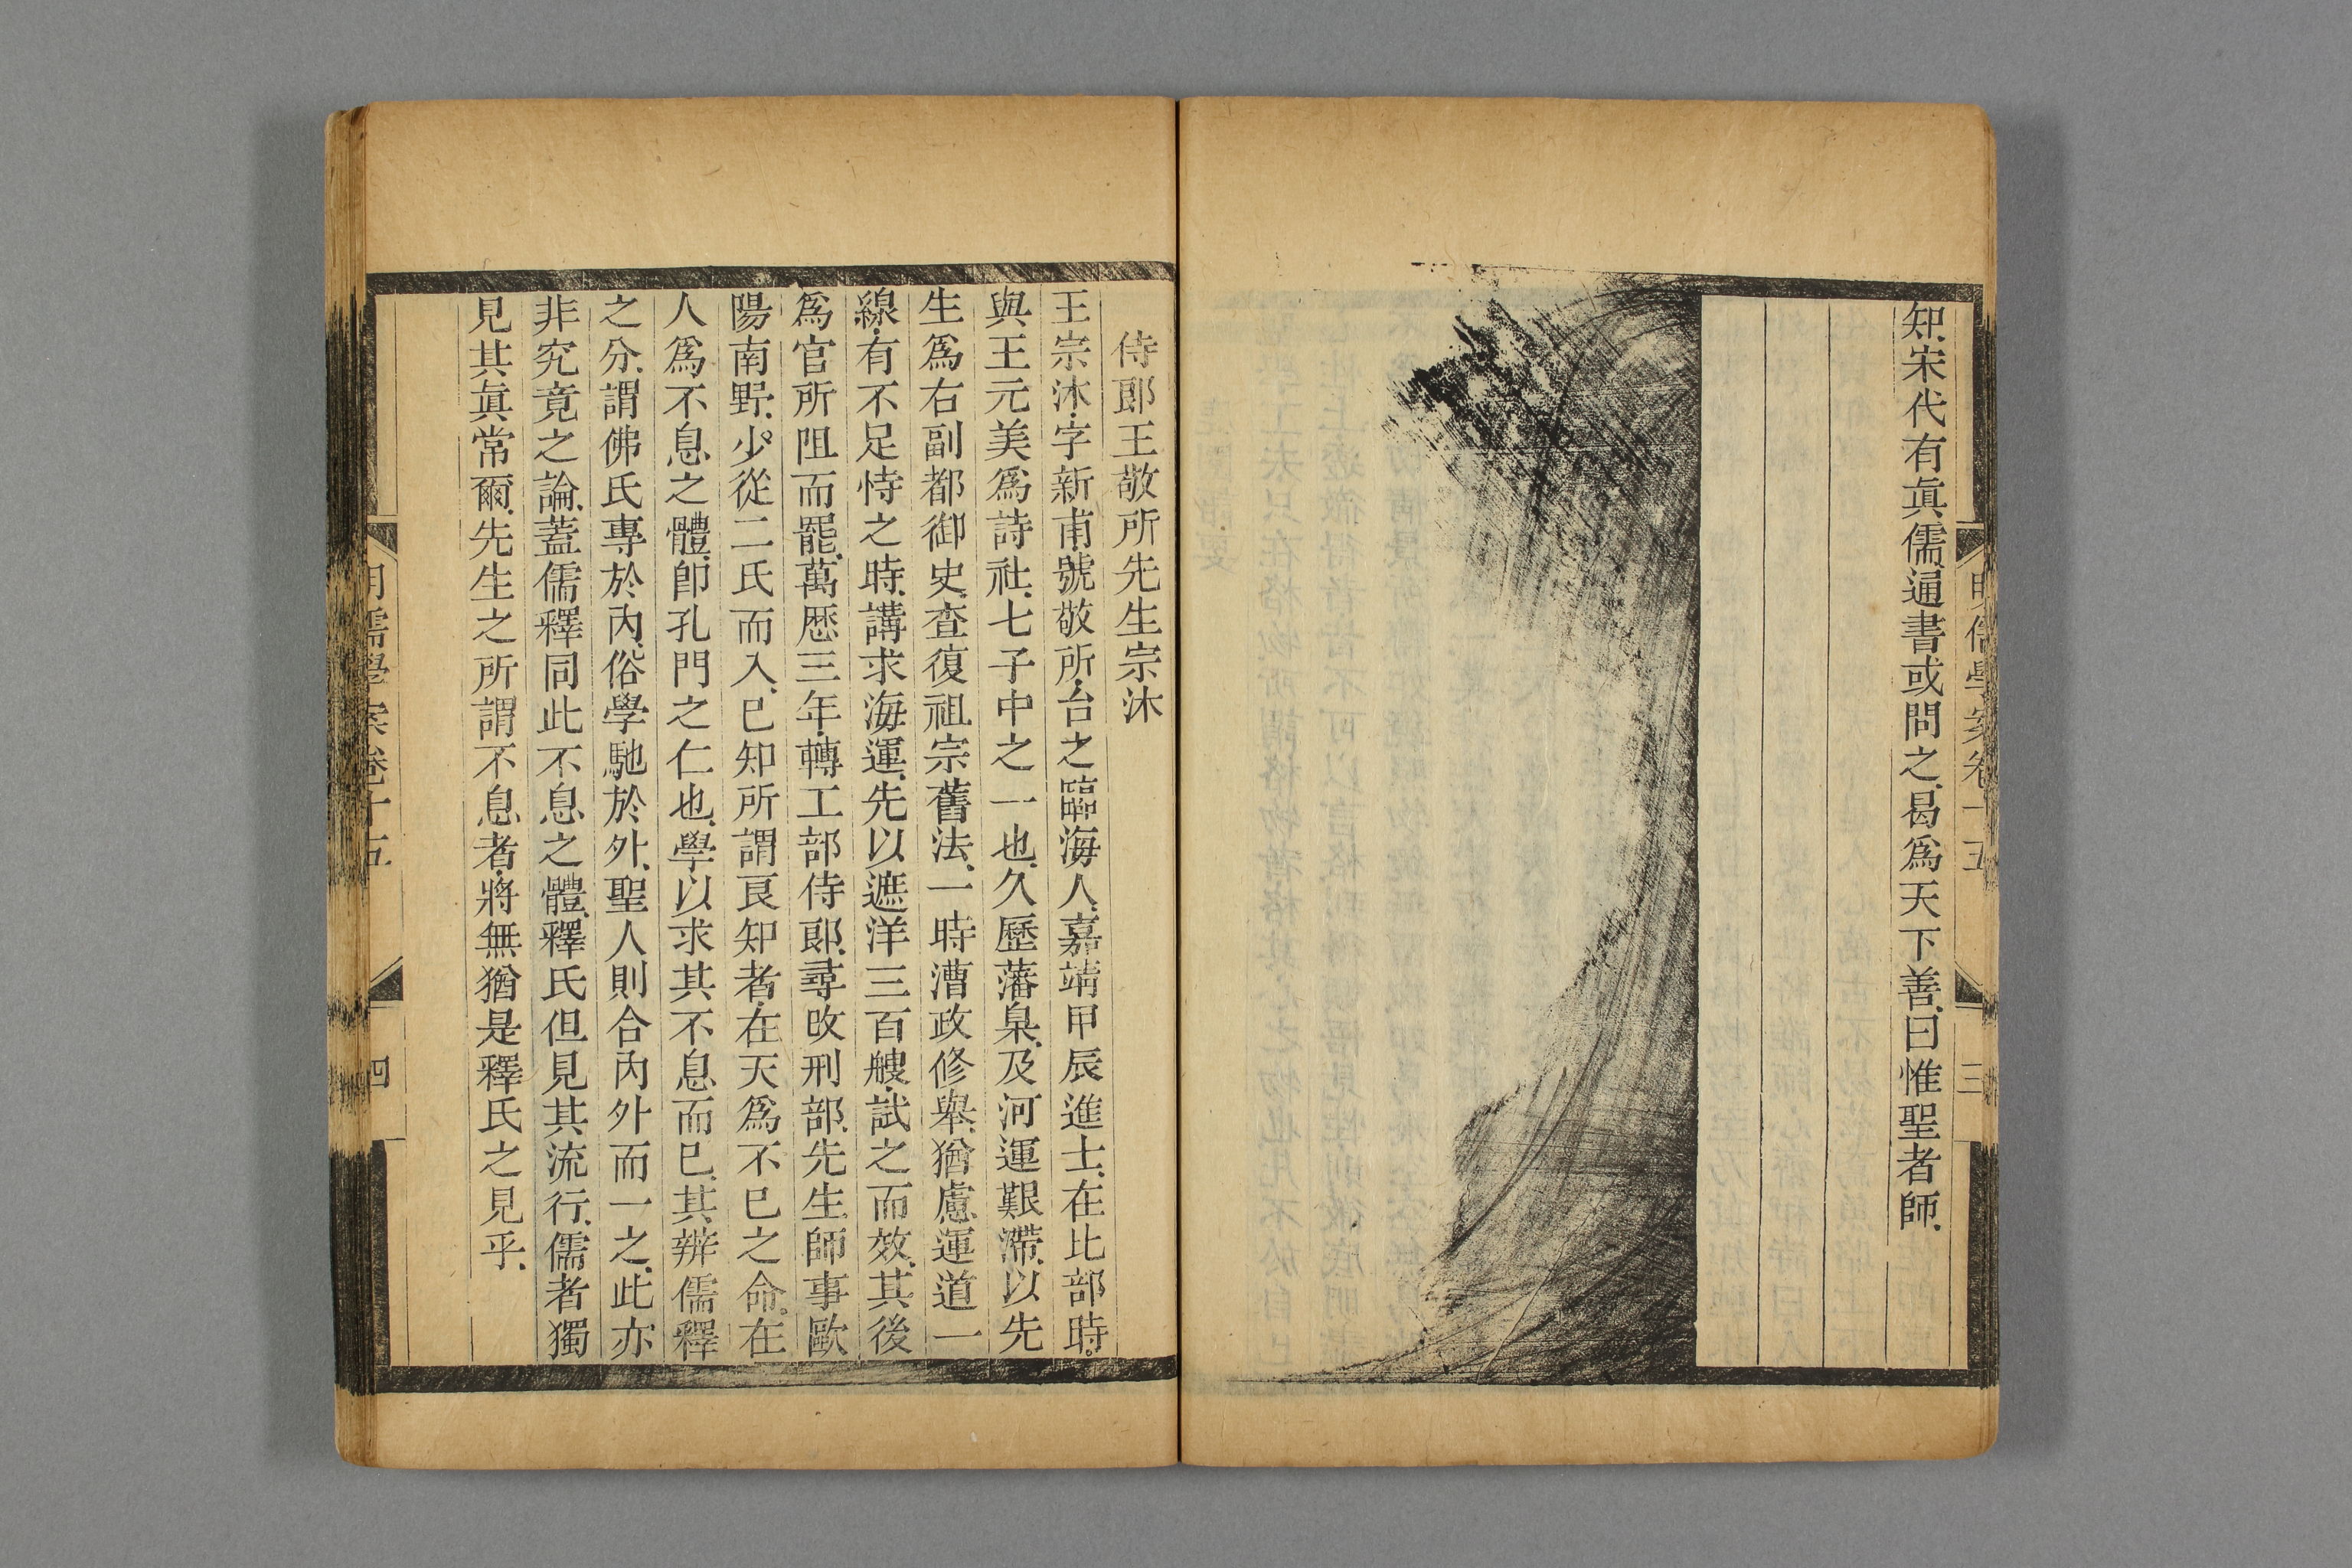 明儒學案卷十五
三
知宋代有眞儒通書或問之曷爲天下善曰惟聖者師
侍郎王敬所先生宗沐
王宗沐字新甫號敬所台之臨海人嘉靖甲辰進士在比部時
與王元美爲詩社七子中之一也久歷藩臬及河運艱滯以先
生爲右副都御史查復祖宗舊法一時漕政修舉猶慮運道一
線有不足恃之時講求海運先以遮洋三百艘試之而效其後
爲官所阻而罷萬歷三年轉工部侍郎尋改刑部先生師事歐
陽南野少從二氏而入已知所謂良知者在天爲不已之命在
人爲不息之體卽孔門之仁也學以求其不息而已其辨儒釋
之分謂佛氏專於內俗學馳於外聖人則合內外而一之此亦
非究竟之論蓋儒釋同此不息之體釋氏但見其流行儒者獨
見其眞常爾先生之所謂不息者將無猶是釋氏之見乎
明儒學案卷十五
四